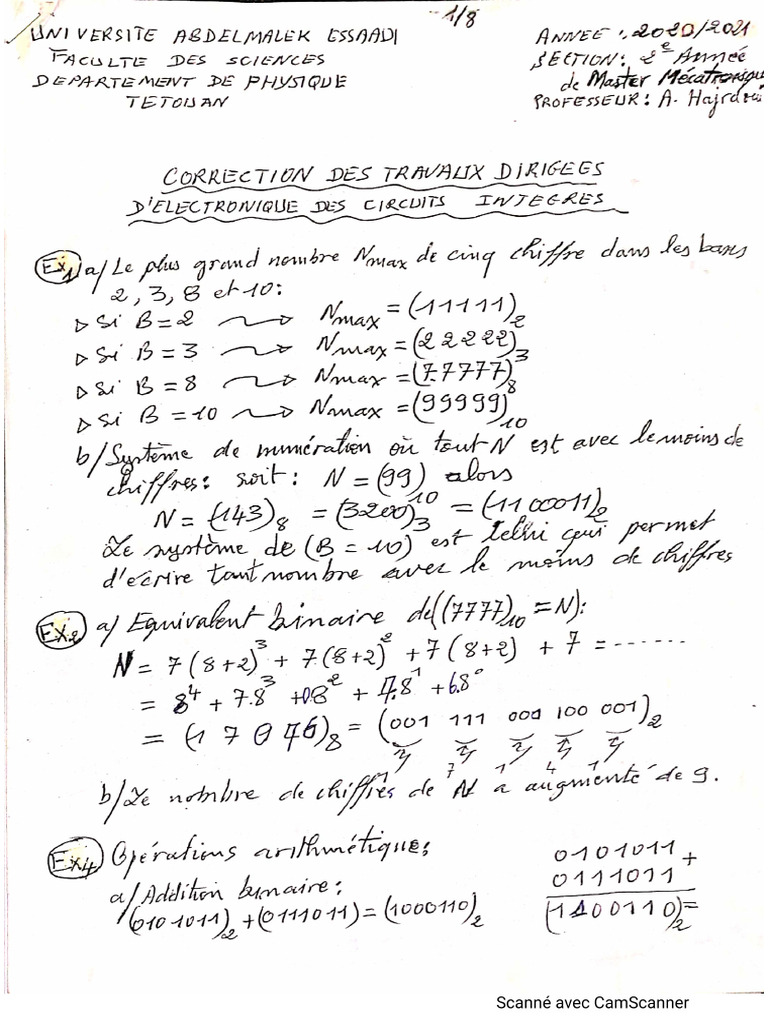 1/8
UNIVERSITE ABDELMALEK ESSAADI
FACULTE DES SCIENCES
DEPARTEMENT DE PHYSIQUE
TETOUAN
ANNEE : 2020/2021
SECTION: 2e Année
de Master Mécatronique
PROFESSEUR: A. Hajrdoui
CORRECTION DES TRAVAUX DIRIGEES
D'ELECTRONIQUE DES CIRCUITS INTEGRES
Ex1) a/ Le plus grand nombre Nmax de cinq chiffre dans les bases
2, 3, 8 et 10:
▷ Si B=2 → Nmax = (11111)2
▷ Si B=3 → Nmax = (22222)3
▷ Si B=8 → Nmax = (77777)8
▷ Si B=10 → Nmax = (99999)10
b/ Système de numération où tout N est avec le moins de
chiffres: soit: N = (99)10 alors
N = (143)8 = (3200)3 = (1100011)2
Le système de (B=10) est celui qui permet
d'écrire tout nombre avec le moins de chiffres
Ex2 a/ Equivalent binaire de ((7777)10 = N):
N = 7(8+2)³ + 7(8+2)² + 7(8+2) + 7 = .......
= 8⁴ + 7.8³ + 0.8² + 4.8¹ + 6.8⁰
= (1 7 0 )8 = (001 111 000 100 001)2
1 7 4 1
b/ Le nombre de chiffres de N a augmenté de 9.
Ex4 Opérations arithmétiques:
a/ Addition binaire:
(0101011)2 + (0111011) = (1000110)2
0101011 +
0111011
(1100110)2 =
Scanné avec CamScanner